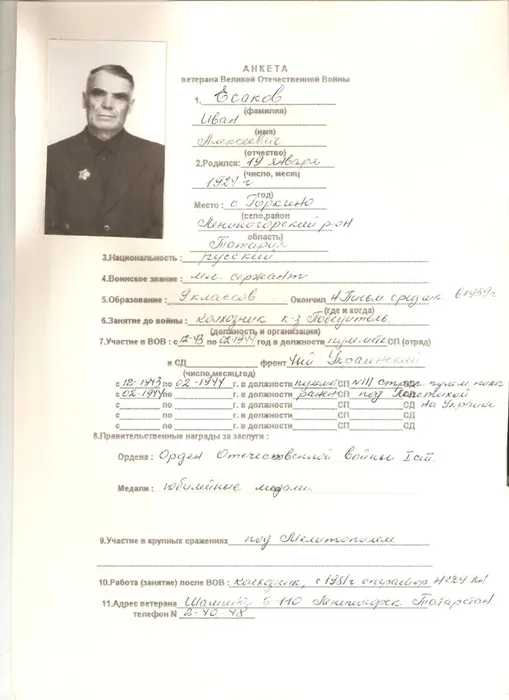 АНКЕТА
ветерана Великой Отечественной Войны
1. Есаков
(фамилия)
Иван
(имя)
Алексеевич
(отчество)
2.Родился: 19 января
(число, месяц
1924 г
год)
Место: с Горкино
(село,район
Лениногорский р-он
область)
Татария
3.Национальность: русский
4.Воинское звание: мл. сержант
5.Образование: 9 классов Окончил в 1939г
(где и когда)
6.Занятие до войны: колхозник к-з Победитель
(должность и организация)
7.Участие в ВОВ: с 12-43 по 02-1944 год в должности СП (отряд)
в СД фронт 4ый Украинский
(число,месяц,год)
с 12-1943 по 02-1944 г. в должности СП СД
с 02-1944 по г. в должности ранен СП под СД на Украине
с по г. в должности СП СД
с по г. в должности СП СД
8.Правительственные награды за заслуги:
Ордена: Орден Отечественной войны I ст.
Медали: юбилейные медали
9.Участие в крупных сражениях под Мелитополем
10.Работа (занятие) после ВОВ: колхозник, с 1951г оператор НГДУ
11.Адрес ветерана 6-110 Лениногорск Татарстан
телефон N 2-40-48